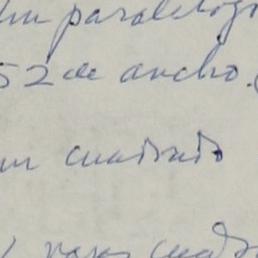 un paralelogr
52 de ancho.
un cuadrado
varas cuadr